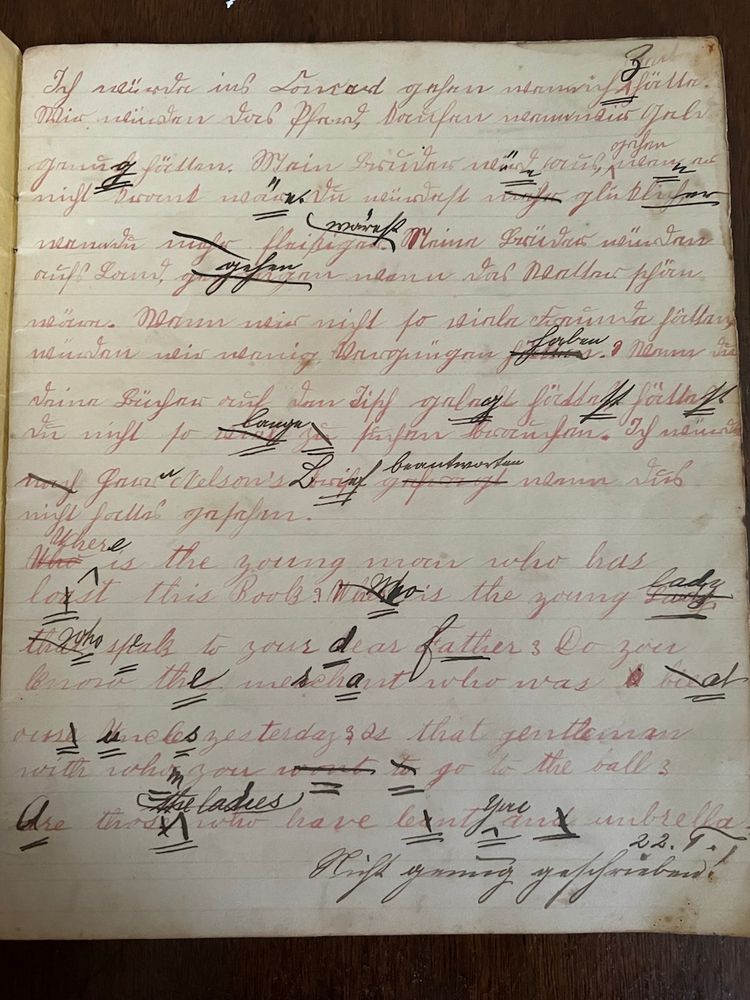 Ich würde ins Concert gehen wenn ich Zeit hätte.
Wir würden das Pferd, kaufen wenn wir Geld
genug hätten. Mein Bruder würde aus gehen, wenn er
nicht krank wäre. Du würdest mehr glücklicher
wenn du mehr fleißiger wärest. Meine Brüder würden
aufs Land, gehen wenn das Wetter schön
wäre. Wenn wir nicht so viele Freunde hätten
würden wir wenig Vergnügen haben. Wenn du
deine Bücher auf den Tisch gelegt hättest hättest
du nicht so lange zu suchen brauchen. Ich würde
nach Herrn Nelson's Brief beantworten wenn du's
nicht hattes gesehen.
Who Where is the young man who has
loast this Book? Who is the young lady
that who speak to your dear father? Do you
know the merchant who was at
our uncles yesterday? Is that gentleman
with whom you want to go to the ball?
Are those the ladies who have leant you and umbrella.
22. T.
Nicht genug geschrieben!